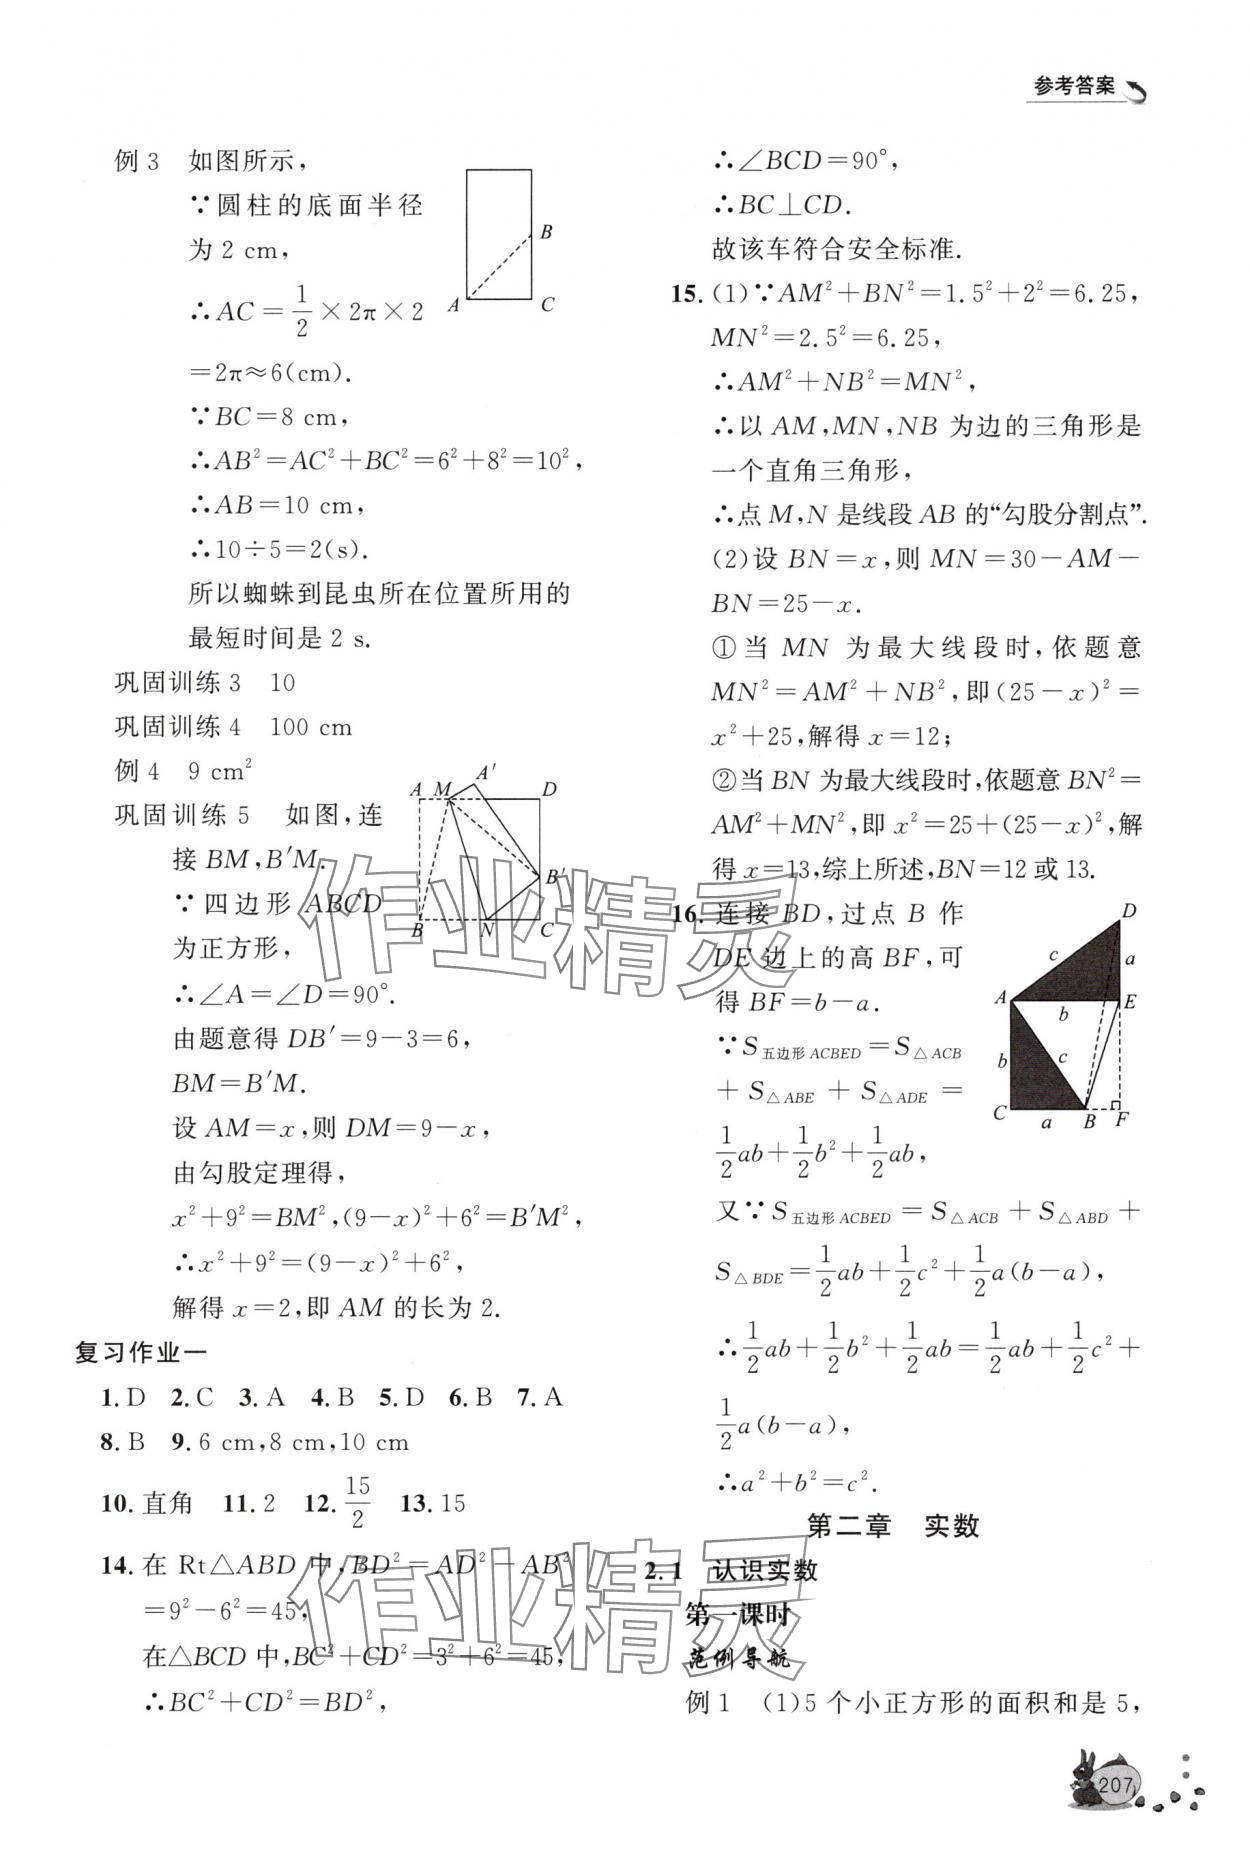 参考答案
例3 如图所示，
∵圆柱的底面半径
为2 cm，
∴AC=1/2×2π×2
=2π≈6(cm).
∵BC=8 cm，
∴AB²=AC²+BC²=6²+8²=10²，
∴AB=10 cm，
∴10÷5=2(s).
所以蜘蛛到昆虫所在位置所用的
最短时间是2 s.
A
B
C
巩固训练3 10
巩固训练4 100 cm
例4 9 cm²
巩固训练5 如图，连
接BM，B′M.
∵四边形ABCD
为正方形，
∴∠A=∠D=90°.
由题意得DB′=9-3=6，
BM=B′M.
设AM=x，则DM=9-x，
由勾股定理得，
x²+9²=BM²，(9-x)²+6²=B′M²，
∴x²+9²=(9-x)²+6²，
解得x=2，即AM的长为2.
A M A′ D
B′
B N C
复习作业一
1.D 2.C 3.A 4.B 5.D 6.B 7.A
8.B 9.6 cm，8 cm，10 cm
10.直角 11.2 12.15/2 13.15
14.在Rt△ABD中，BD²=AD²-AB²
=9²-6²=45，
在△BCD中，BC²+CD²=3²+6²=45，
∴BC²+CD²=BD²，
∴∠BCD=90°，
∴BC⊥CD.
故该车符合安全标准.
15.(1)∵AM²+BN²=1.5²+2²=6.25，
MN²=2.5²=6.25，
∴AM²+NB²=MN²，
∴以AM，MN，NB为边的三角形是
一个直角三角形，
∴点M，N是线段AB的“勾股分割点”.
(2)设BN=x，则MN=30-AM-
BN=25-x.
①当MN为最大线段时，依题意
MN²=AM²+NB²，即(25-x)²=
x²+25，解得x=12；
②当BN为最大线段时，依题意BN²=
AM²+MN²，即x²=25+(25-x)²，解
得x=13，综上所述，BN=12或13.
16.连接BD，过点B作
DE边上的高BF，可
得BF=b-a.
∵S五边形ACBED=S△ACB
+S△ABE+S△ADE=
1/2ab+1/2b²+1/2ab，
又∵S五边形ACBED=S△ACB+S△ABD+
S△BDE=1/2ab+1/2c²+1/2a(b-a)，
∴1/2ab+1/2b²+1/2ab=1/2ab+1/2c²+
1/2a(b-a)，
∴a²+b²=c².
D
c a
A b E
b c
C a B F
第二章 实数
2.1 认识实数
第一课时
范例导航
例1 (1)5个小正方形的面积和是5，
207
作业精灵
作业精灵